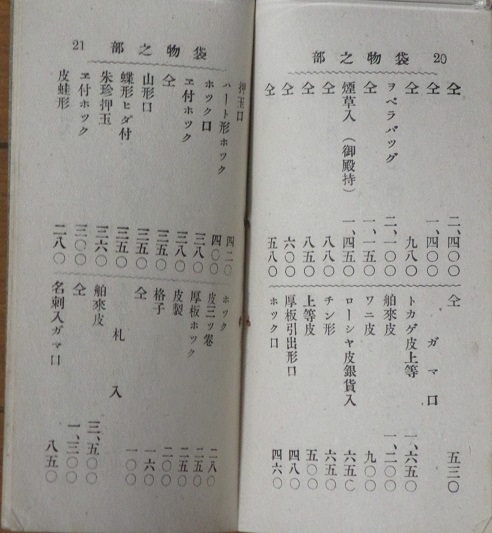 20 袋物之部
仝 二、四〇〇
仝 一、四〇〇
仝 九八〇
ヲペラバッグ 二、一〇〇
仝 一、一五〇
煙草入(御殿持) 一、四五〇
仝 八五〇
仝 八五〇
仝 六〇〇
仝 五八〇
仝 五三〇
ガマ口
トカゲ皮上等 一、六五〇
舶來皮 一、二〇〇
ワニ皮 九〇〇
ローシャ皮銀貨入 六五〇
チン形 六五〇
上等皮 五〇〇
厚板引出形口 四八〇
ホック口 四六〇
袋物之部 21
押玉口 四二〇
ハート形ホック 四〇〇
ホック口 三八〇
ヱ付ホック 三八〇
仝 三五〇
山形口 三五〇
蝶形ヒダ付 三五〇
朱珍押玉 三六〇
ヱ付ホック 三〇〇
皮蛙形 二八〇
ホック 二八〇
皮三ッ卷 二五〇
厚板ホック 二五〇
皮製 二〇〇
格子 一六〇
仝 一〇〇
札入
舶來皮 三、五〇〇
仝 一、三〇〇
名刺入ガマ口 八五〇